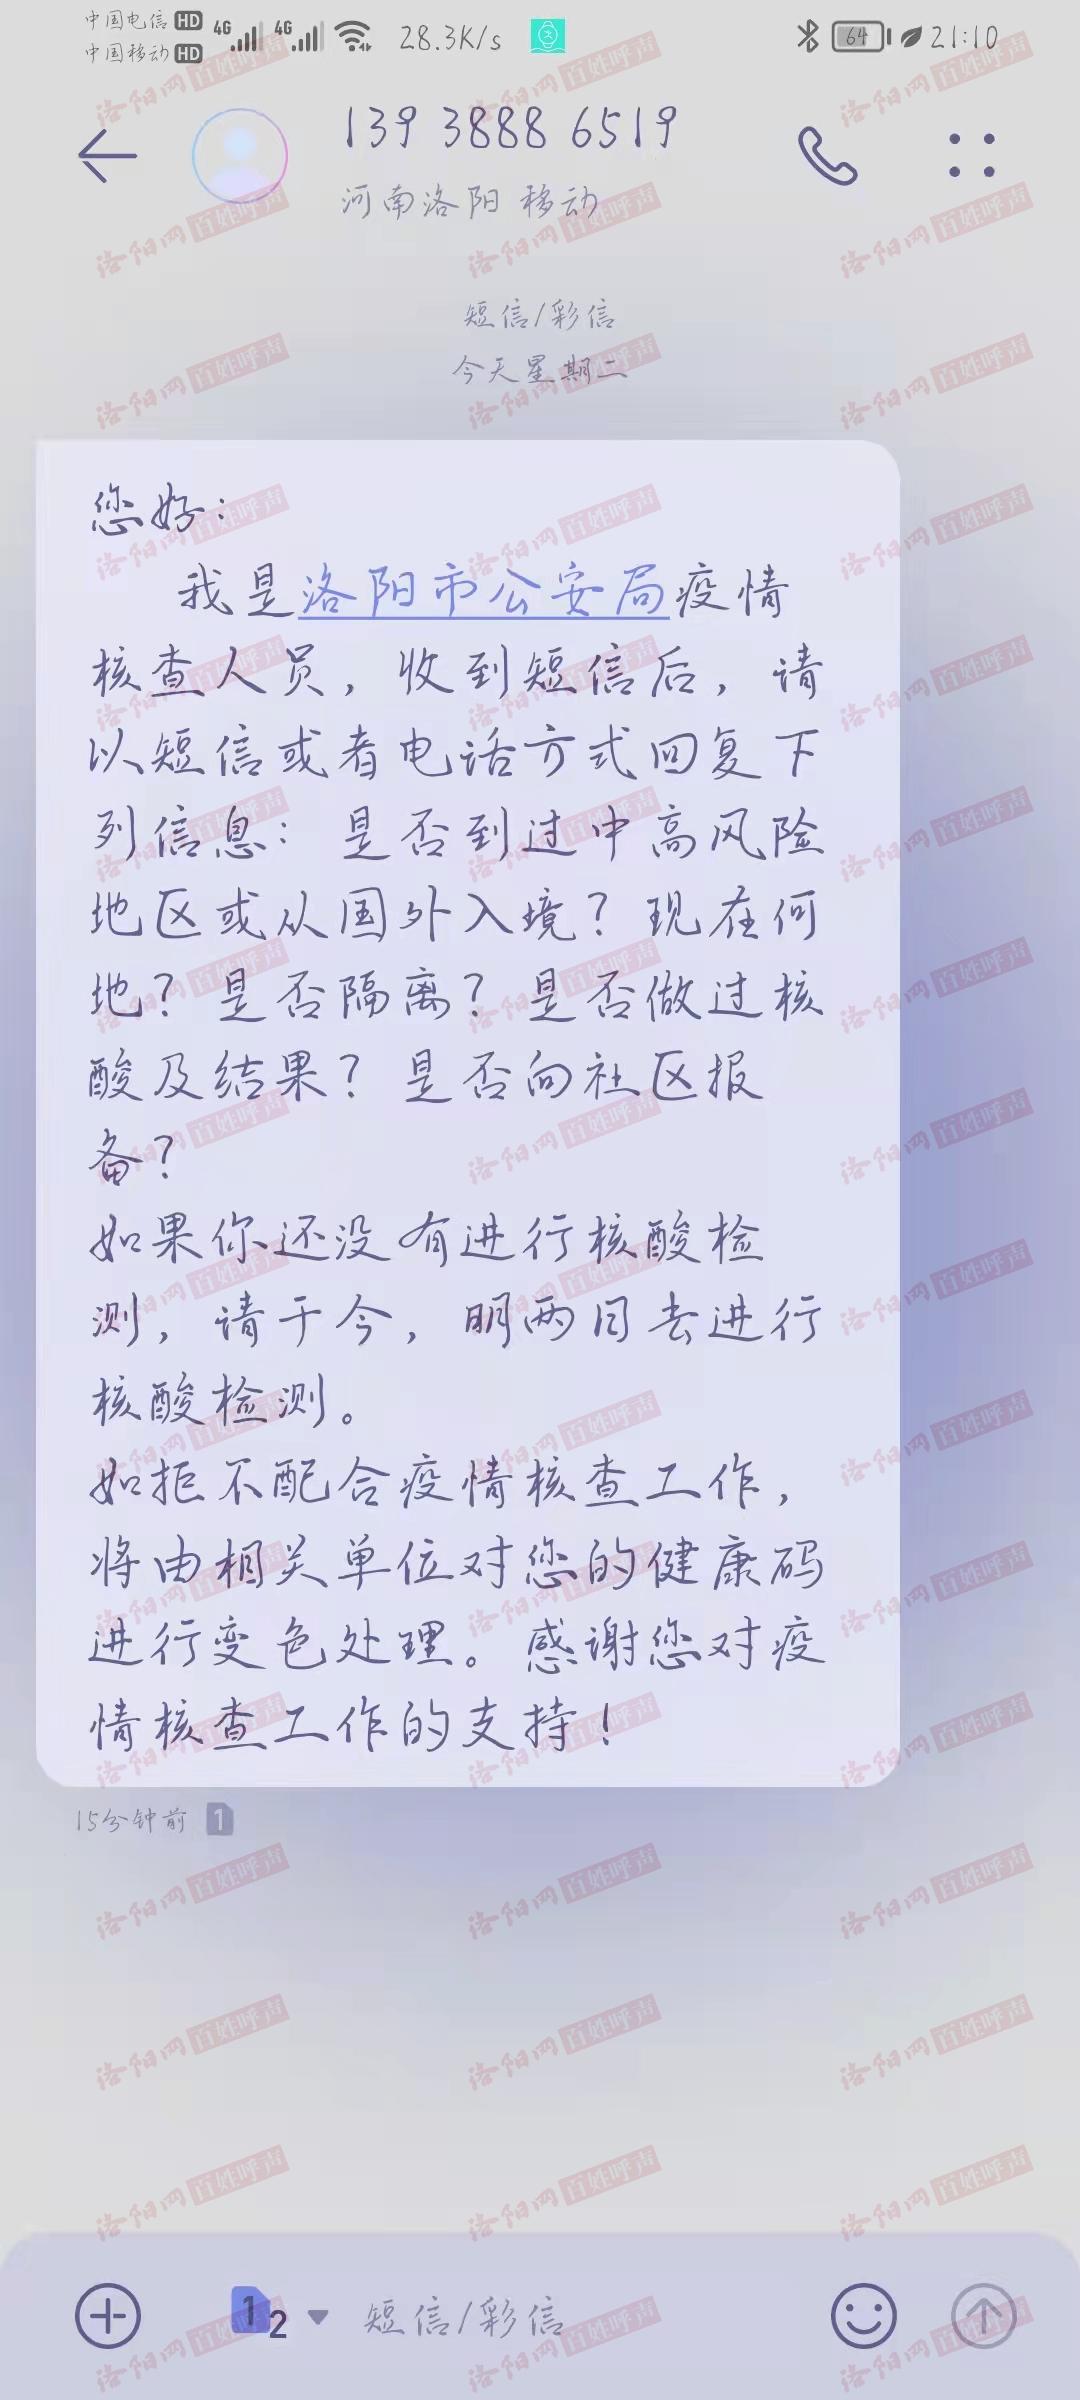 中国电信 HD 4G 4G 28.3K/s 64 21:10
中国移动 HD
139 3888 6519
河南洛阳 移动
短信/彩信
今天星期二
您好：
我是洛阳市公安局疫情
核查人员，收到短信后，请
以短信或者电话方式回复下
列信息：是否到过中高风险
地区或从国外入境？现在何
地？是否隔离？是否做过核
酸及结果？是否向社区报
备？
如果你还没有进行核酸检
测，请于今，明两日去进行
核酸检测。
如拒不配合疫情核查工作，
将由相关单位对您的健康码
进行变色处理。感谢您对疫
情核查工作的支持！
15分钟前 1
1 2 短信/彩信
洛阳网 百姓呼声